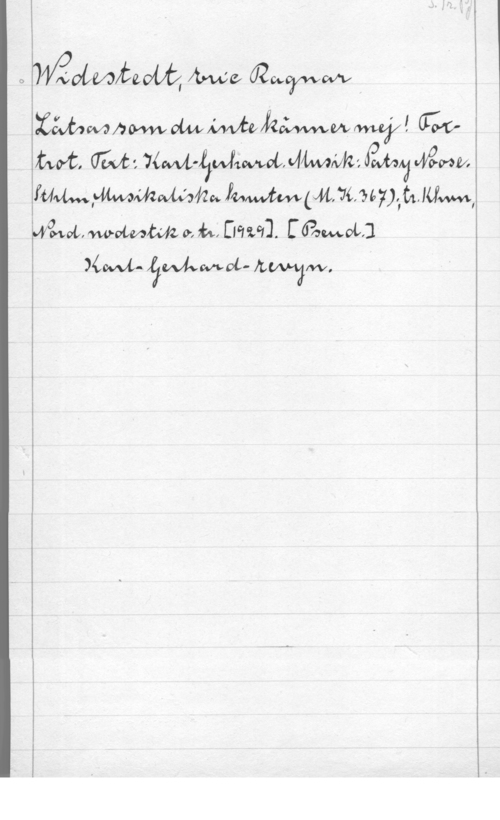 Widestedt, Eric Ragnar
Låtsas som du inte känner mej! Fox-
trot. Text: Karl-Gerhard. Musik: Patsy Noose.
Sthlm, Musikaliska knuten (M.K. 367); tr. Khvn,
Nord. nodestik o. tr. [1929]. [Pseud.]
Karl-Gerhard-revyn.